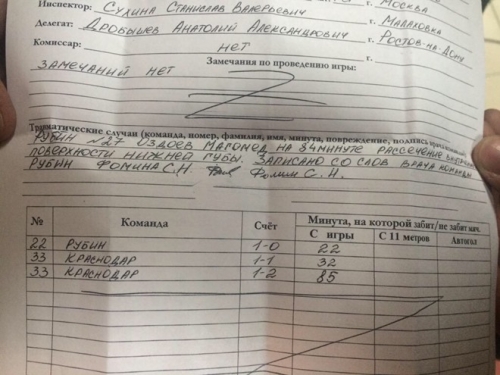 Инспектор: Сухина Станислав Валерьевич г. Москва
Делегат: Дробышев Анатолий Александрович г. Малаховка
Комиссар: нет г. Ростов-на-Дону
Замечания по проведению игры:
Замечаний нет
Травматические случаи (команда, номер, фамилия, имя, минута, повреждение, подпись врача
Рубин №27 Оздоев Магомед на 84 минуте рассечение внутренней
поверхности нижней губы. Записано со слов врача команды
Рубин Фомина С.Н. Фомин С.Н.
Минута, на которой забит/не забит мяч.
№ Команда Счёт С игры С 11 метров Автогол
22 Рубин 1-0 22
33 Краснодар 1-1 32
33 Краснодар 1-2 85